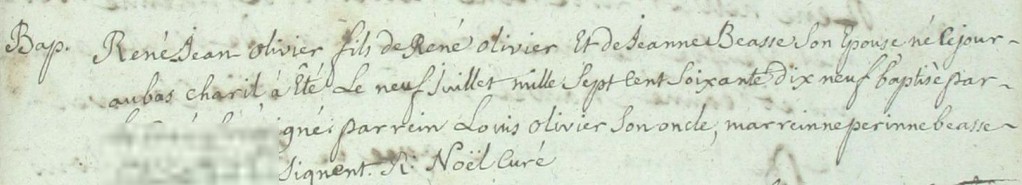 Bap. René Jean olivier fils de René olivier Et de Jeanne Beasse Son Epouse né le jour-
au bas charil á Eté Le neuf Juillet mille Sept Cent Soixante dix neuf baptisé par-
gné: parrein Louis olivier Son oncle, marreinne perinne beasse-
Signent. R: Noël Curé